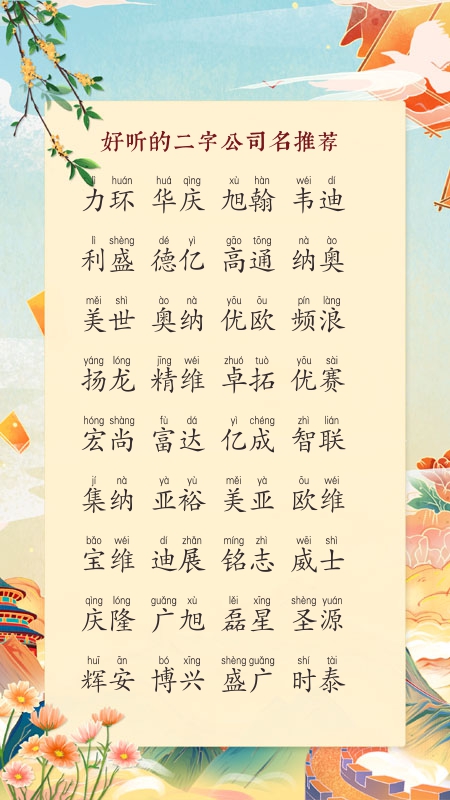 好听的二字公司名推荐
lì huán huá qìng xù hàn wéi dí
力环 华庆 旭翰 韦迪
lì shèng dé yì gāo tōng nà ào
利盛 德亿 高通 纳奥
měi shì ào nà yōu ōu pín làng
美世 奥纳 优欧 频浪
yáng lóng jīng wéi zhuó tuò yōu sài
扬龙 精维 卓拓 优赛
hóng shàng fù dá yì chéng zhì lián
宏尚 富达 亿成 智联
jí nà yà yù měi yà ōu wéi
集纳 亚裕 美亚 欧维
bǎo wéi dí zhǎn míng zhì wēi shì
宝维 迪展 铭志 威士
qìng lóng guǎng xù lěi xīng shèng yuán
庆隆 广旭 磊星 圣源
huī ān bó xīng shèng guǎng shí tài
辉安 博兴 盛广 时泰